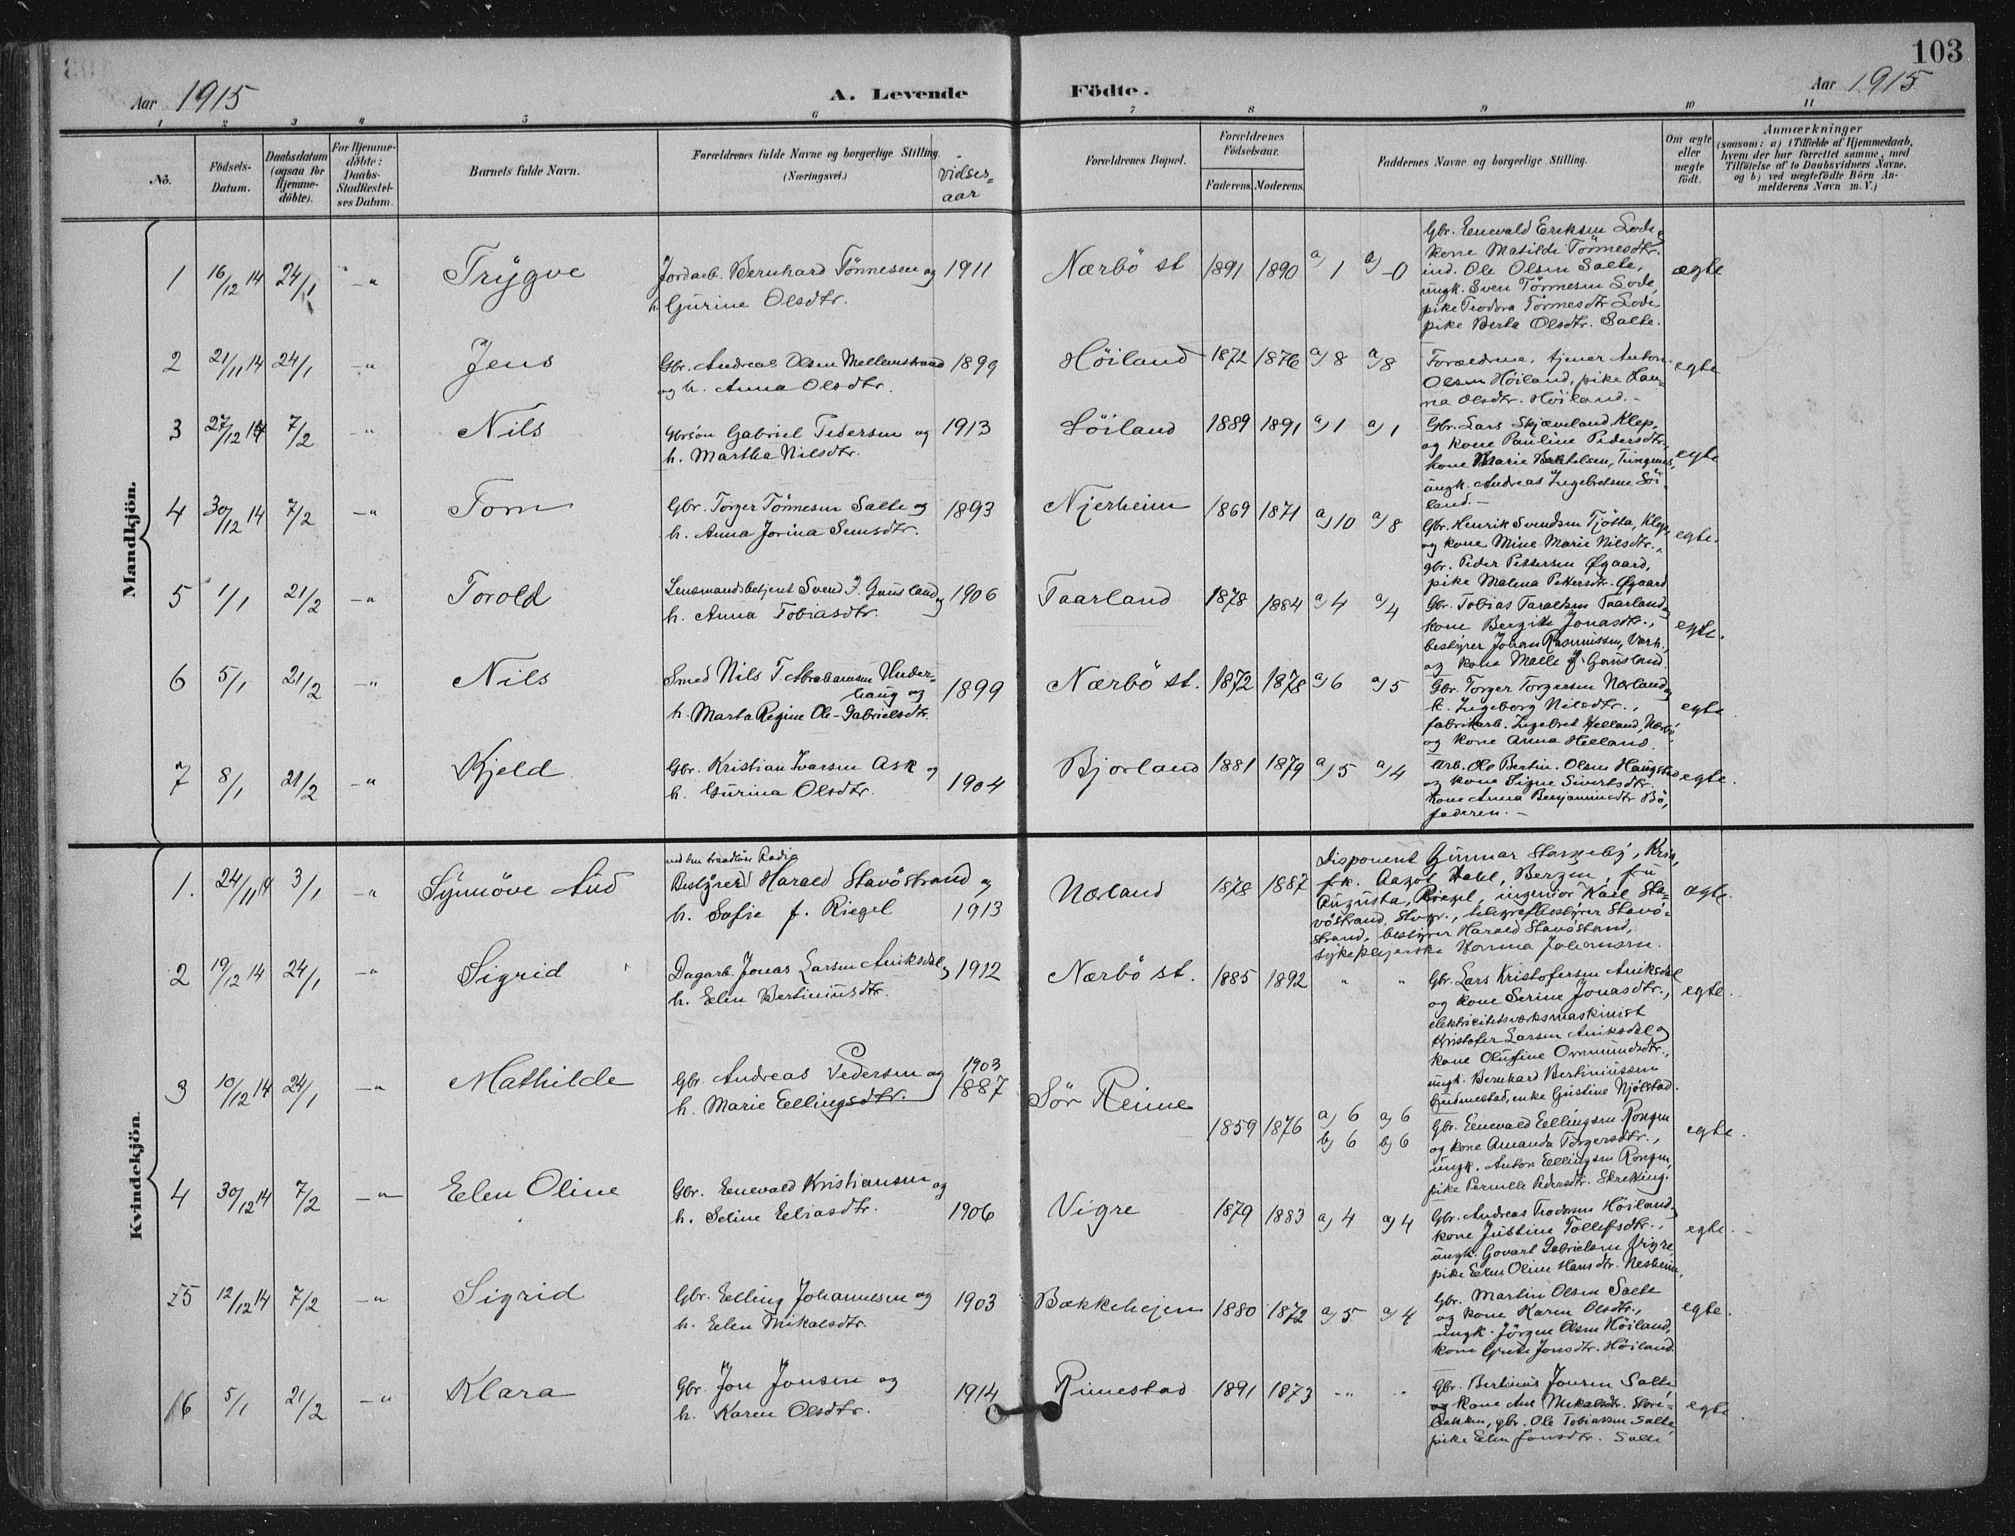 103
Aar 1915
A. Levende
Födte.
Aar 1915
1 2 3 4 5 6 7 8 9 10 11
No.
Födsels-
Datum.
Daabsdatum
(ogsaa for
Hjemme-
döbte).
For Hjemme-
döbte:
Daabs-
Stadfæstel-
ses Datum.
Barnets fulde Navn.
Forældrenes fulde Navne og borgerlige Stilling
(Næringsvei.)
vidses-
aar
Forældrenes Bopæl.
Forældrenes
Födselsaar.
Faderens. Moderens.
Faddernes Navne og borgerlige Stilling.
Om ægte
eller
uægte
födt.
Anmærkninger
(saasom: a) i Tilfælde af Hjemmedaab,
hvem der har forrettet samme, med
Tilföielse af to Daabsvidners Navne,
og b) ved uægtefödte Börn An-
melderens Navn m. V.)
Mandkjön.
1 16/12 14 24/1 -"- Trygve
Jordarb. Bernhard Tönnesen og 1911
h. Gurine Olsdtr.
Nærbö st 1891 1890 a) 1 a) -0
Gbr. Enevald Eriksen Lode
kone Matilde Tönnesdtr.
ind. Ole Olsen Salte,
ungk. Sven Tönnesen Lode,
pike Teodora Tönnesdtr Lode,
pike Berta Olsdtr. Salte.
ægte
2 21/11 14 24/1 -"- Jens
Gbr. Andreas Olsen Mellemstrand 1899
og h. Anna Olsdtr.
Höiland 1872 1876 a) 8 a) 8
Forældrene, tjener Anton
Olsen Höiland, pike Han-
na Olsdtr. Höiland.
egte
3 27/12 14 7/2 -"- Nils
Gbrsön Gabriel Pedersen og 1913
h. Martha Nilsdtr.
Söiland 1889 1891 a) 1 a) 1
Gbr. Lars Skjæveland Klep,
og kone Pauline Pedersdtr,
kone Marie Bertelsen, Tungenes,
ungk. Andreas Ingebretsen Söi-
land.
egte
4 30/12 14 7/2 -"- Tom
Gbr. Torger Tönnesen Salte og 1893
h. Anna Jorina Semsdtr.
Njerheim 1869 1871 a) 10 a) 8
Gbr. Henrik Svendsen Tjötta, Klep,
og kone Mine Marie Nilsdtr.,
gbr. Peder Pettersen Øgaard,
pike Malena Pettersdtr. Øgaard
egte.
5 1/1 21/2 -"- Torold
Lensmandsbetjent Svend J. Gausland og 1906
h. Anna Tobiasdtr.
Taarland 1878 1884 a) 4 a) 4
Gbr. Tobias Taraldsen Taarland og
kone Bergitte Jonasdtr.,
bestyrer Johan Rasmussen, Varh.,
og kone Malle J. Gausland.
egte.
6 5/1 21/2 -"- Nils
Smed Nils T. Abrahamsen Under-
haug og 1899
h. Marta Regine Ole-Gabrielsdtr.
Nærbö st. 1872 1878 a) 6 a) 5
Gbr. Torger Torgersen Nærland og
k. Ingeborg Nilsdtr.,
fabrikarb. Ingebret Helland, Nærbö,
og kone Anna Helland.
egte
7 8/1 21/2 -"- Kjeld
Gbr. Kristian Ivarsen Ask og
h. Gurina Olsdtr. 1904
Bjorland 1881 1879 a) 5 a) 4
Arb. Ole Bertin. Olsen Haugstad
og kone Signe Sivertsdtr.
kone Anna Benjaminsdtr Bö,
faderen.
egte.
Kvindekjön.
1. 24/11 14 3/1 -"- Synnöve Aud
ved den traadlöse Radio
Bestyrer Harald Stavöstrand og
h. Sofie f. Riegel 1913
Nærland 1878 1887
Disponent Gunnar Stangeby, Kria,
frk. Aagot Dahl, Bergen, fru
Augusta Riegel, ingeniör Karl Sta-
vöstrand, Stvgr., telegrafbestyrer Stavö-
strand, bestyrer Harald Stavöstrand,
sykepleyerske Hanna Johansen.
ægte.
2 19/12 14 24/1 -"- Sigrid
Dagarb. Jonas Larsen Aniksdal og 1912
h. Elen Bertiniusdtr.
Nærbö st. 1885 1892 " "
Gbr. Lars Kristofersen Aniksdal
og kone Serine Jonasdtr.,
elektricitetsverksmaskinist
Kristofer Larsen Aniksdal og
kone Olufine Ommundsdtr.,
ungk. Bernhard Bertiniussen
Gudmestad, enke Gustine Njölstad.
egte.
3 10/12 14 24/1 -"- Mathilde
Gbr. Andreas Pedersen og 1903
h. Marie Ellingsdtr. 1887
Sör Reime 1859 1876 a) 6 a) 6
b) 6 b) 6
Gbr. Enevald Ellingsen Rongen
og kone Amanda Torgersdtr.,
ungk. Anton Ellingsen Rongen,
pike Pernille Pedersdtr. Skretting.
egte.
4 30/12 14 7/2 -"- Elen Oline
Gbr. Enevald Kristiansen og
h. Seline Eliasdtr. 1906
Vigre 1879 1883 a) 4 a) 4
Gbr. Andreas Tradesen Höiland og
kone Justine Tollefsdtr.,
ungk. Govart Gabrielsen Vigre,
pike Elen Oline Hansdtr. Nesheim.
egte.
5 12/12 14 7/2 -"- Sigrid
Gbr. Elling Johannesen og 1903
h. Elen Mikalsdtr.
Bakkehejen 1880 1872 a) 5 a) 4
Gbr. Martin Olsen Salte
og kone Karen Olsdtr.,
ungk. Jörgen Olsen Höiland,
kone Grete Jonsdtr. Höiland.
egte.
6 5/1 21/2 -"- Klara
Gbr. Jon Jonsen og 1914
h. Karen Olsdtr.
Rimestad 1891 1873 -"- "
Gbr. Bertinius Jonsen Salte,
og kone Ane Mikalsdtr. Store-
bakken, gbr. Ole Tobiassen Salte,
pike Elen Jonsdtr. Salte
egte.